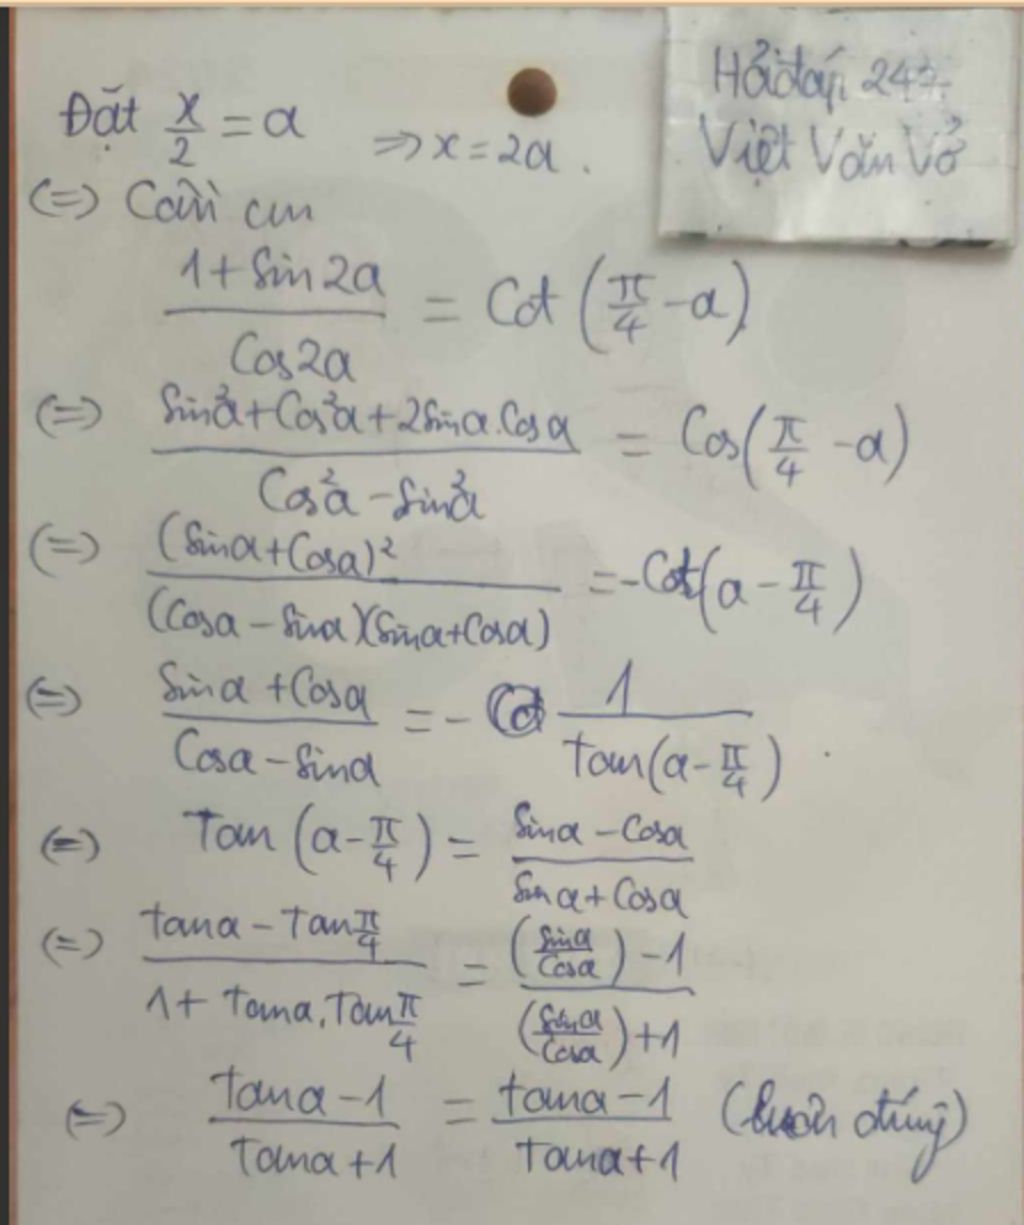 Hỏi đáp 247
Việt Văn Vở
Đặt x/2 = a ⇒ x = 2a.
(=) Cần cm
(1 + Sin2a)/(Cos2a) = Cot(π/4 - a)
(=) (Sin²a + Cos²a + 2Sina.Cosa)/(Cos²a - Sin²a) = Cos(π/4 - a)
(=) (Sina + Cosa)²/((Cosa - Sina)(Sina + Cosa)) = -Cot(a - π/4)
(=) (Sina + Cosa)/(Cosa - Sina) = - 1/(tan(a - π/4))
(=) Tan(a - π/4) = (Sina - Cosa)/(Sina + Cosa)
(=) (tana - Tan π/4)/(1 + tana.Tan π/4) = ((Sina/Cosa) - 1)/((Sina/Cosa) + 1)
(=) (tana - 1)/(Tana + 1) = (tana - 1)/(Tana + 1) (luôn đúng)